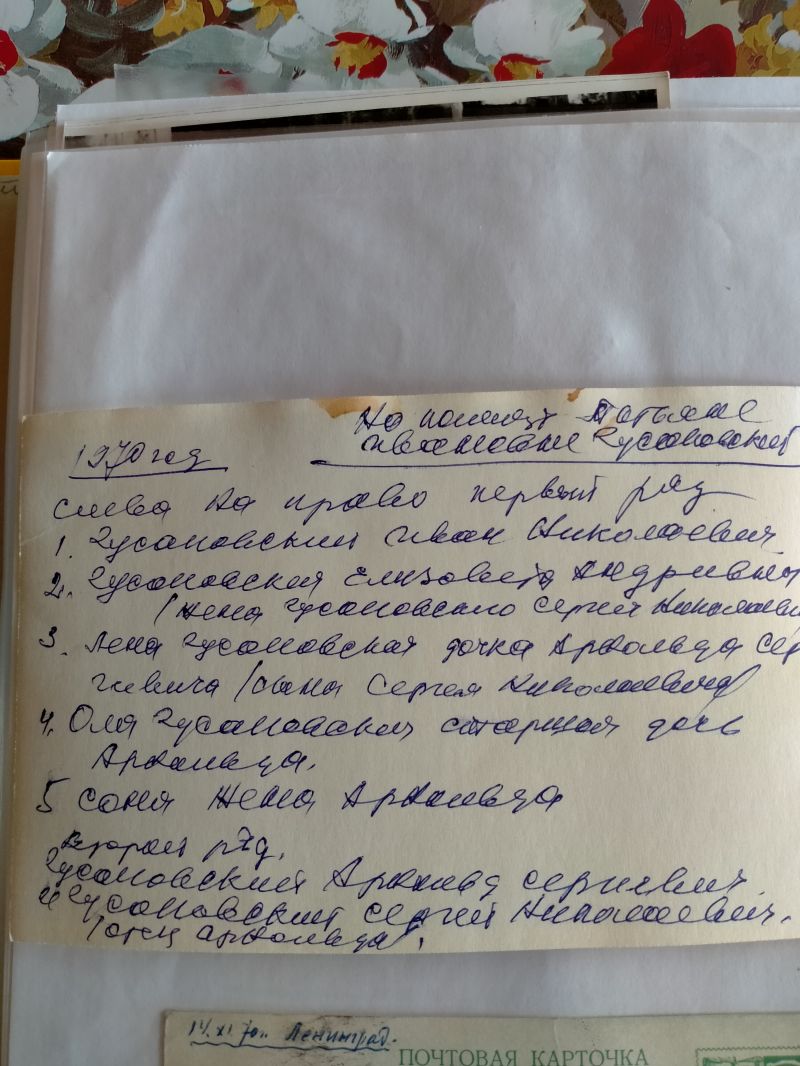 На память Татьяне
1970 год
Ивановне Гусаковский
слева на право первый ряд
1. Гусаковский Иван Николаевич
2. Гусаковская Елизовета Андривна
/жена Гусаковского Сергея Николаеви
3. Лена Гусаковская дочка Арнольда Сер
гиевича /сына Сергея Николаевича/
4. Оля Гусаковская старшая дочь
Арнольда.
5 Соня жена Арнольда
Второй ряд.
Гусаковский Арнольд сергиевич
и Гусаковский Сергей Николаевич.
/отец Арнольда/.
14.XI.70г. Ленинград.
ПОЧТОВАЯ КАРТОЧКА